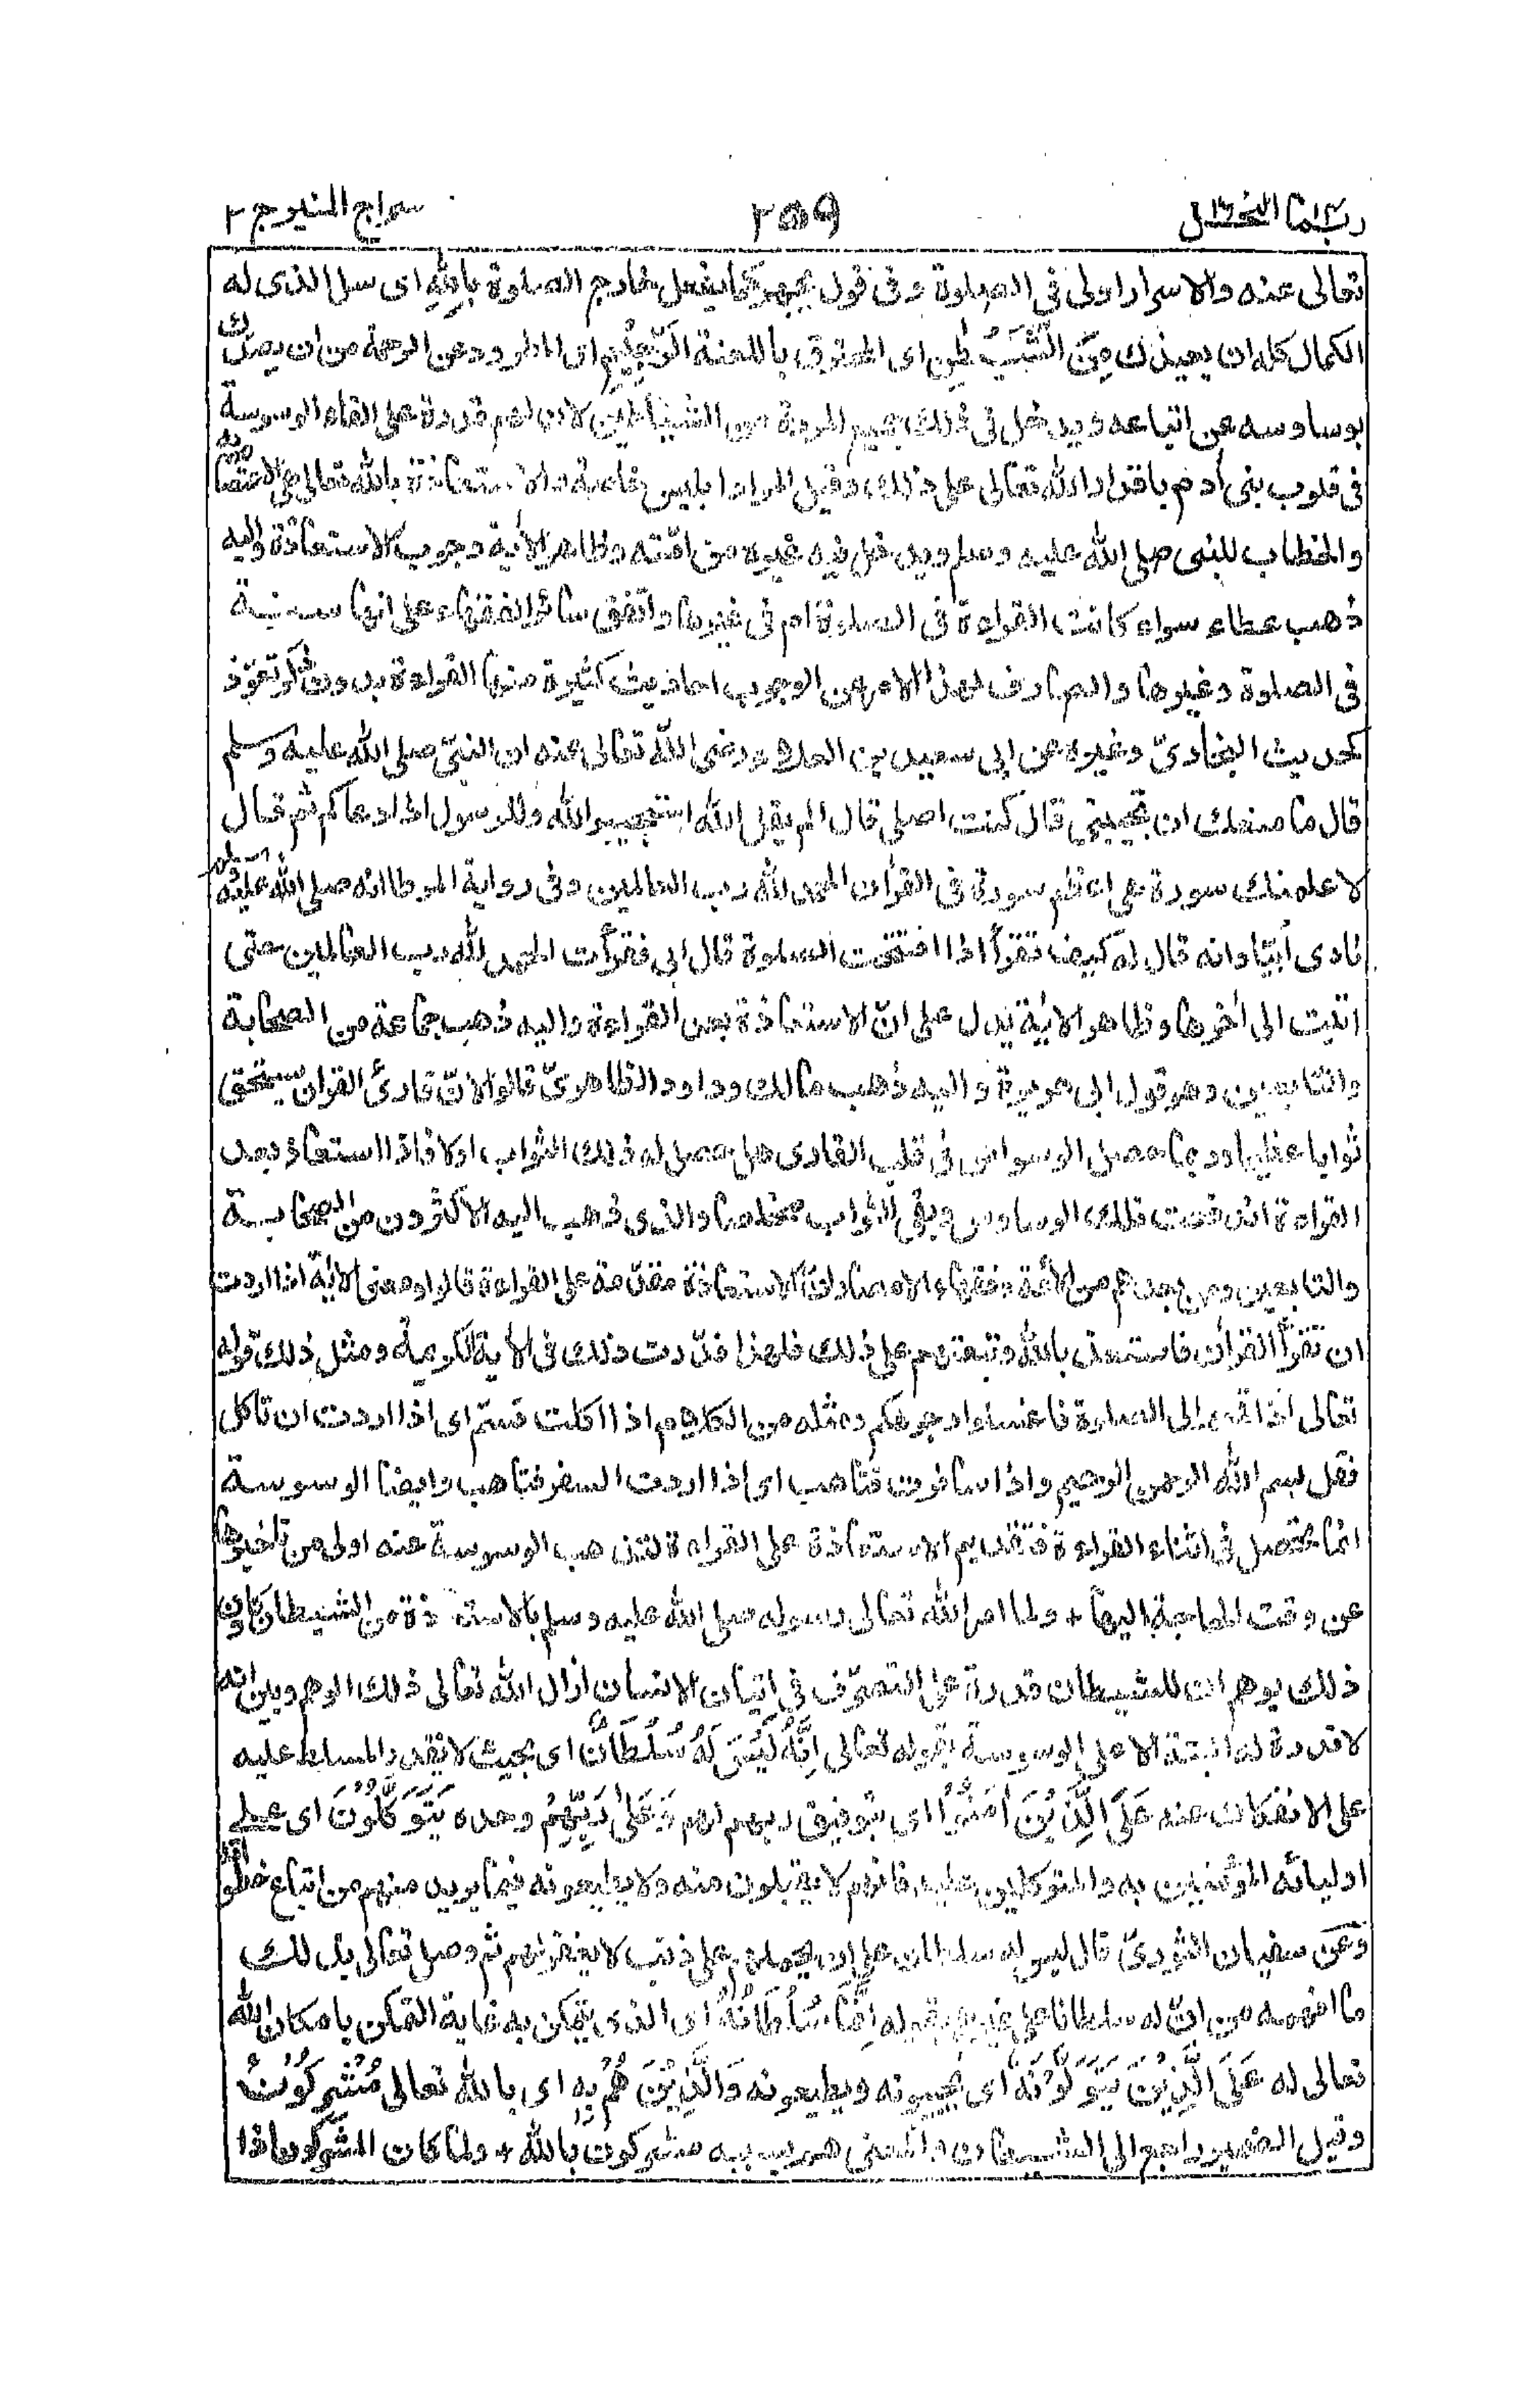 ربما النحل ٢٥٩ سراج المنير ج ٢
تعالى عنه والاسرار اولى فى الصلوة وفى قول يجهر كما يفعل خارج الصلوة بِاللهِ اى سل الذى له
الكمال كله ان يعيذك مِنَ الشَّيْطٰنِ اى المحترق باللعنة الرَّجِيْمِ اى المطرود عن الرحمة من ان يصدك
بوساوسه عن اتباعه ويدخل فى ذلك جميع المردة من الشياطين لان لهم قدرة على القاء الوسوسة
فى قلوب بنى أدم باقدار الله تعالى على ذلك وقيل المراد ابليس خاصة والاستعاذة بالله تعالى هى الاعتصام به
والخطاب للنبى صلى الله عليه وسلم ويدخل فيه غيره من امّته وظاهر الأية وجوب الاستعاذة واليه
ذهب عطاء سواء كانت القراءة فى الصلوة ام فى غيرها واتّفق سائر الفقهاء على انها سنة
فى الصلوة وغيرها والصارف لهذا الامر عن الوجوب احاديث كثيرة منها القراءة بدون ذكر تعوّذ
كحديث البخارىّ وغيره عن ابى سعيد بن المعلى رضى الله تعالى عنه ان النبىّ صلى الله عليه وسلم
قال ما منعك ان تجيبنى قال كنت اصلى قال الم يقل الله استجيبوا لله وللرسول اذا دعاكم ثم قال
لاعلمنك سورة هى اعظم سورة فى القرأن الحمد لله رب العالمين وفى رواية الموطا انه صلى الله عليه وسلم
نادى أبيّا وانه قال له كيف تقرأ اذا افتتحت الصلوة قال ابى فقرأت الحمد لله رب العالمين حتى
اتيت الى أخرها وظاهر الأية يدل على انّ الاستعاذة بعد القراءة واليه ذهب جماعة من الصحابة
والتابعين وهو قول ابى هريرة واليه ذهب مالك وداود الظاهرىّ قالوا لانّ قارئ القران يستحق
ثوابا عظيما وربما حصل الوسواس فى قلب القارى هل حصل له ذلك الثواب اولا فاذا استعاذ بعد
القراءة اندفعت تلك الوساوس وبقى الثواب مخلصا والذى ذهب اليه الاكثرون من الصحابة
والتابعين ومن بعدهم من الأئمة وفقهاء الامصار انّ الاستعاذة مقدّمة على القراءة قالوا ومعنى الأية اذا اردت
ان تقرأ القرأن فاستعذ بالله وتبعتهم على ذلك فلهذا قدّرت ذلك فى الأية الكريمة ومثل ذلك قوله
تعالى اذا قمتم الى الصلوة فاغسلوا وجوهكم ومثله من الكلام اذا اكلت فسمّ اى اذا اردت ان تاكل
فقل بسم الله الرحمن الرحيم واذا سافرت فتاهب اى اذا اردت السفر فتاهب وايضا الوسوسة
انما تحصل فى اثناء القراءة فتقديم الاستعاذة على القراءة لتذهب الوسوسة عنه اولى من تاخيرها
عن وقت الحاجة اليها + ولما امر الله تعالى رسوله صلى الله عليه وسلم بالاستعاذة من الشيطان وكان
ذلك يوهم ان للشيطان قدرة على التصرّف فى اتيان الانسان ازال الله تعالى ذلك الوهم وبين انه
لا قدرة له البتة الا على الوسوسة بقوله تعالى اِنَّهٗ لَيْسَ لَهٗ سُلْطٰنٌ اى بحيث لا يقدر المسلط عليه
على الانفكاك عنه عَلَى الَّذِيْنَ اٰمَنُوْا اى بتوفيق ربهم لهم وَعَلٰى رَبِّهِمْ وحده يَتَوَكَّلُوْنَ اى على
اوليائه المؤمنين به والمتوكلين عليه فانهم لا يقبلون منه ولا يطيعونه فيما يريد منهم من اتباع خطواته
وعن سفيان الثورىّ قال ليس له سلطان على ان يحملهم على ذنب لا يغفر لهم ثم وصل تعالى بذلك
ما افهمه من انّ له سلطانا على غيرهم بقوله اِنَّمَا سُلْطٰنُهٗ اى الذى يتمكن به غاية التمكن بامكان الله
تعالى له عَلَى الَّذِيْنَ يَتَوَلَّوْنَهٗ اى يجيبونه ويطيعونه وَالَّذِيْنَ هُمْ بِهٖ اى بالله تعالى مُشْرِكُوْنَ
وقيل الضمير راجع الى الشيطان والمعنى هم بسببه مشركون بالله + ولما كان المشركون اذا